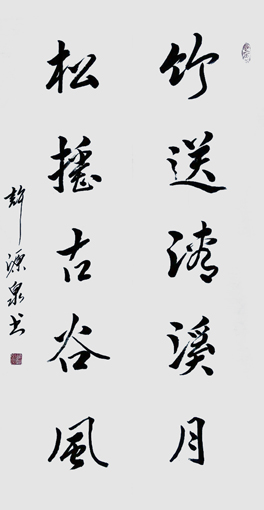 竹送清溪月
松摇古谷風
許源泉书